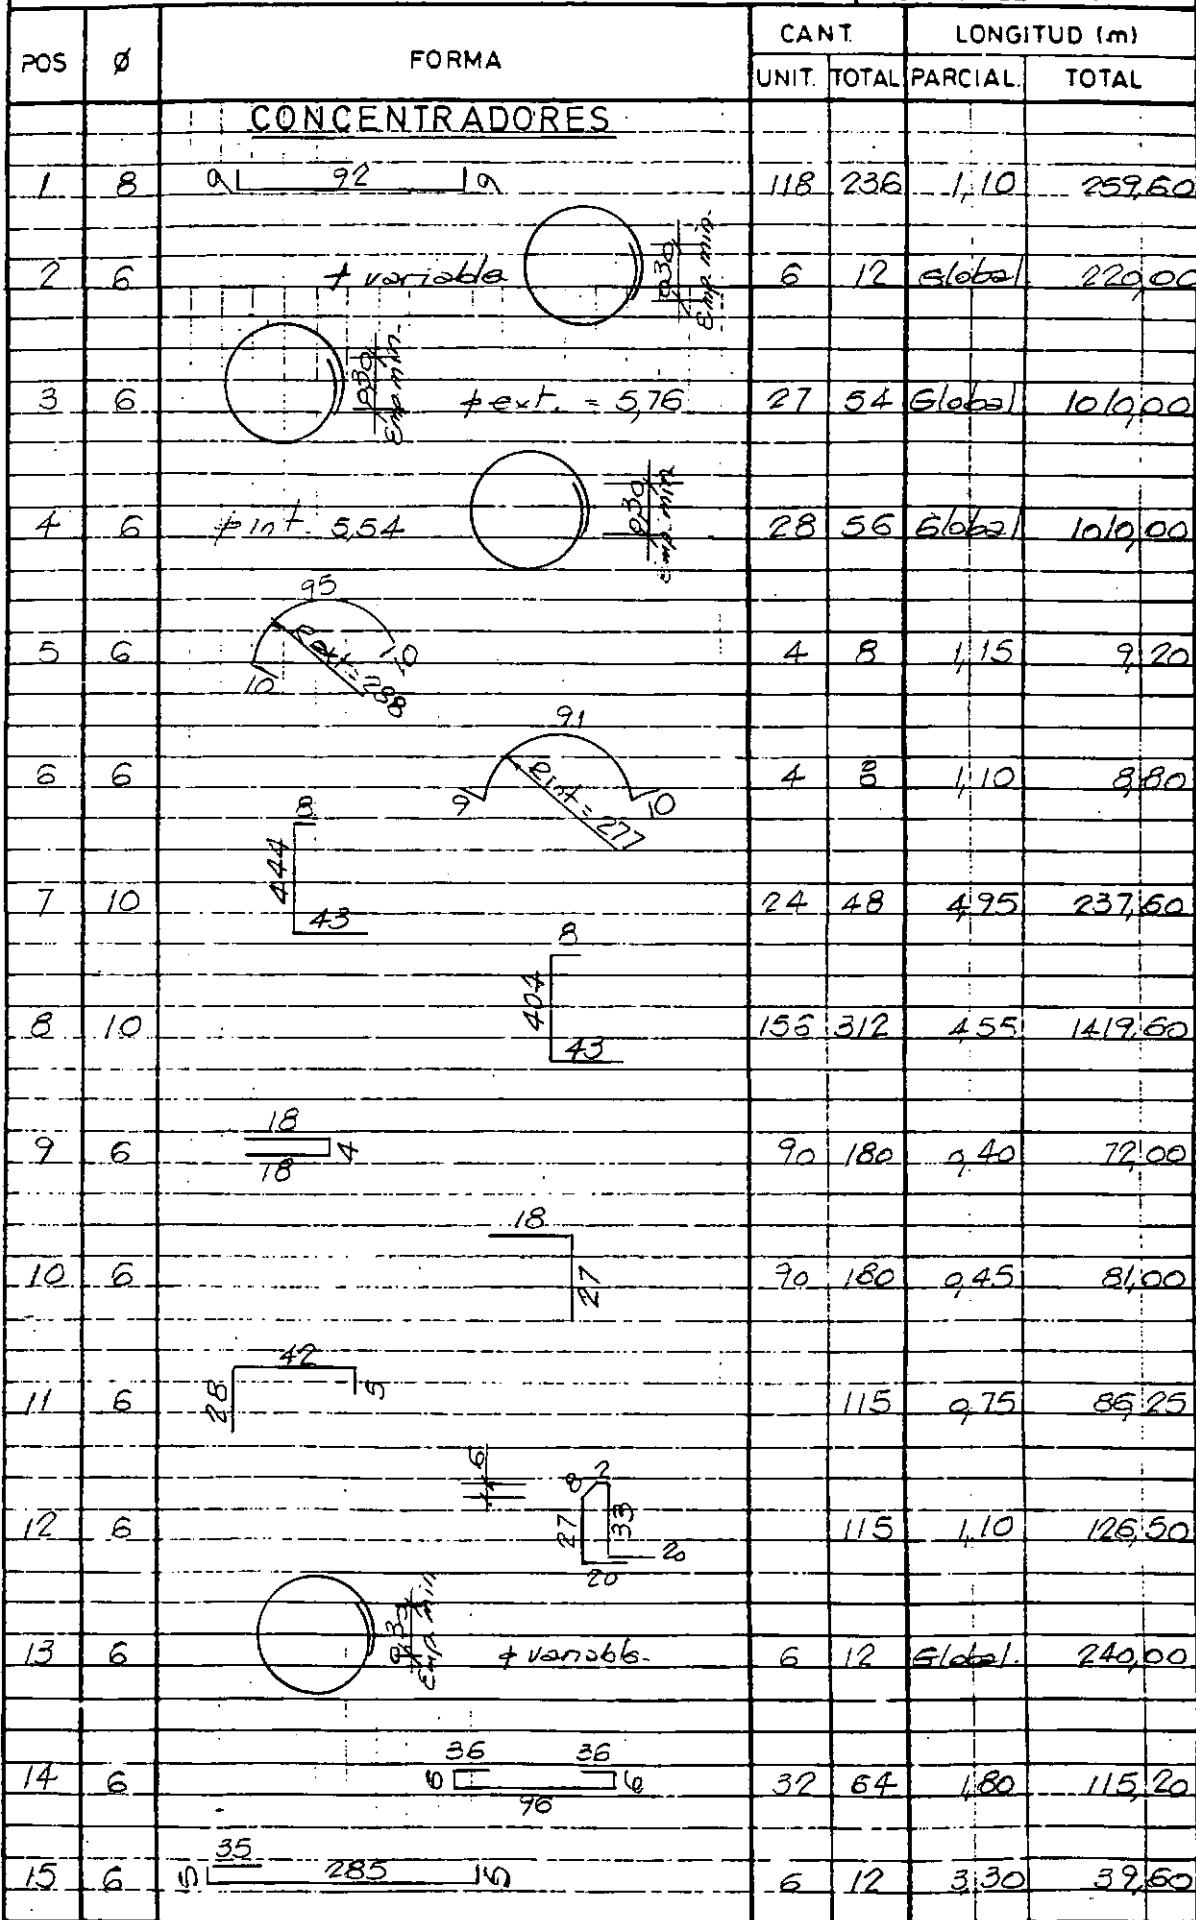 POS Ø FORMA CANT. LONGITUD (m)
UNIT. TOTAL PARCIAL. TOTAL
CONCENTRADORES
1 8 9 92 9 118 236 1,10 259,60
2 6 ϕ variable 0,30 Emp. min. 6 12 Global 220,00
3 6 0,30 Emp. min. ϕ ext. = 5,76 27 54 Global 1010,00
4 6 ϕ int. 5,54 0,30 Emp. min 28 56 Global 1010,00
5 6 95 10 R ext. = 288 10 4 8 1,15 9,20
6 6 91 9 R int = 277 10 4 8 1,10 8,80
7 10 8 444 43 24 48 4,95 237,60
8 10 8 404 43 156 312 4,55 1419,60
9 6 18 4 18 90 180 0,40 72,00
10 6 18 27 90 180 0,45 81,00
11 6 42 28 5 115 0,75 86,25
12 6 6 8 2 27 33 20 20 115 1,10 126,50
13 6 0,30 Emp. min ϕ variable. 6 12 Global. 240,00
14 6 36 36 6 6 96 32 64 1,80 115,20
15 6 35 5 285 5 6 12 3,30 39,60